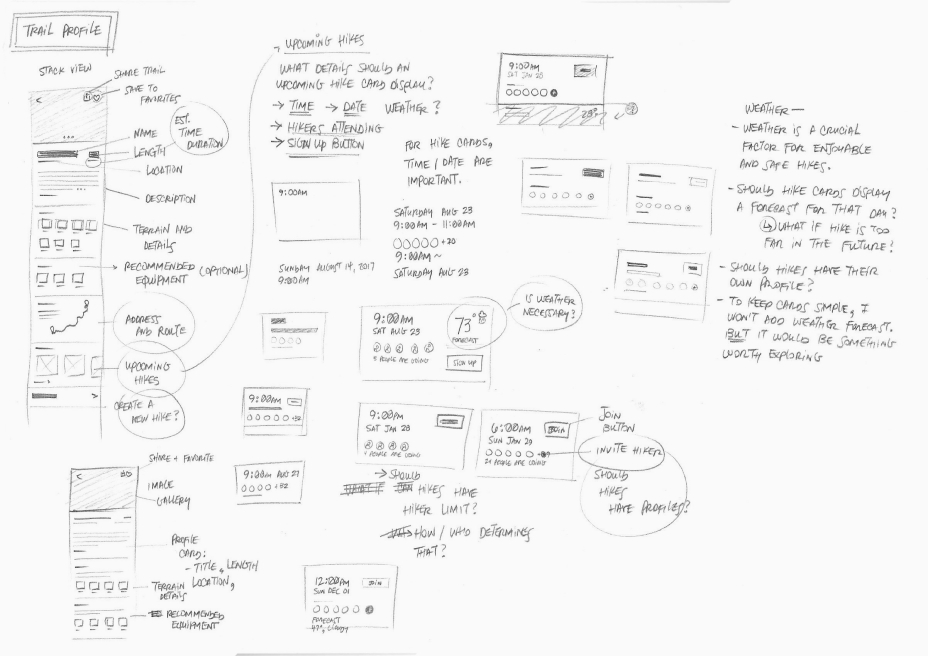 TRAIL PROFILE
STACK VIEW
SHARE TRAIL
SAVE TO
FAVORITES
EST.
TIME
DURATION
NAME
LENGTH
LOCATION
DESCRIPTION
TERRAIN AND
DETAILS
RECOMMENDED
EQUIPMENT (OPTIONAL)
ADDRESS
AND ROUTE
UPCOMING
HIKES
CREATE A
NEW HIKE?
SHARE + FAVORITE
IMAGE
GALLERY
PROFILE
CARD:
- TITLE, LENGTH
LOCATION,
TERRAIN
DETAILS
RECOMMENDED
EQUIPMENT
→ UPCOMING HIKES
WHAT DETAILS SHOULD AN
UPCOMING HIKE CARD DISPLAY?
→ TIME → DATE WEATHER?
→ HIKERS ATTENDING
→ SIGN UP BUTTON
9:00AM
SUNDAY AUGUST 14, 2017
9:00AM
FOR HIKE CARDS,
TIME / DATE ARE
IMPORTANT.
SATURDAY AUG 23
9:00AM - 11:00AM
+20
9:00AM ~
SATURDAY AUG 23
9:00AM
SAT JAN 28
28°
9:00AM
SAT AUG 23
5 PEOPLE ARE GOING
73°
FORECAST
SIGN UP
IS WEATHER
NECESSARY?
9:00AM
+32
9:00AM AUG 27
+32
9:00AM
SAT JAN 28
4 PEOPLE ARE GOING
6:00AM
SUN JAN 29
JOIN
24 PEOPLE ARE GOING
JOIN
BUTTON
INVITE HIKER
SHOULD
HIKES
HAVE PROFILES?
→ SHOULD
WHAT IF CAN HIKES HAVE
HIKER LIMIT?
HOW / WHO DETERMINES
THAT?
12:00AM
SUN DEC 01
JOIN
FORECAST
47°, CLOUDY
WEATHER —
- WEATHER IS A CRUCIAL
FACTOR FOR ENJOYABLE
AND SAFE HIKES.
- SHOULD HIKE CARDS DISPLAY
A FORECAST FOR THAT DAY?
↳ WHAT IF HIKE IS TOO
FAR IN THE FUTURE?
- SHOULD HIKES HAVE THEIR
OWN PROFILE?
- TO KEEP CARDS SIMPLE, I
WON'T ADD WEATHER FORECAST.
BUT IT WOULD BE SOMETHING
WORTH EXPLORING